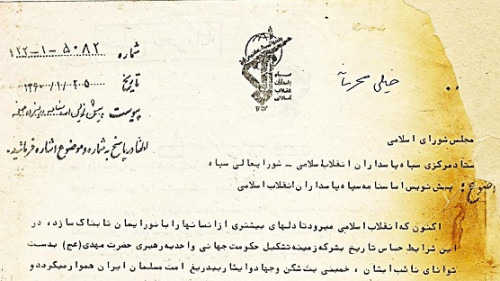 شماره ۵۰۸۲-۱-۱۲۲
تاریخ
پیوست پیش نویس اساسنامه
خیلی محرمانه
سپاه
پاسداران
انقلاب
اسلامی
لطفا در پاسخ به شماره و موضوع اشاره فرمائید.
مجلس شورای اسلامی
ستاد مرکزی سپاه پاسداران انقلاب اسلامی - شورایعالی سپاه
موضوع: پیش نویس اساسنامه سپاه پاسداران انقلاب اسلامی
اکنون که انقلاب اسلامی میرود تا دلهای بیشتری از انسانها را با نور ایمان تابناک سازد، در
این شرایط حساس تاریخ بشر که زمینه تشکیل حکومت جهانی واحد به رهبری حضرت مهدی (عج) بدست
توانای نائب ایشان، خمینی بت شکن و جهاد و ایثار بیدریغ امت مسلمان ایران هموار میگردد و